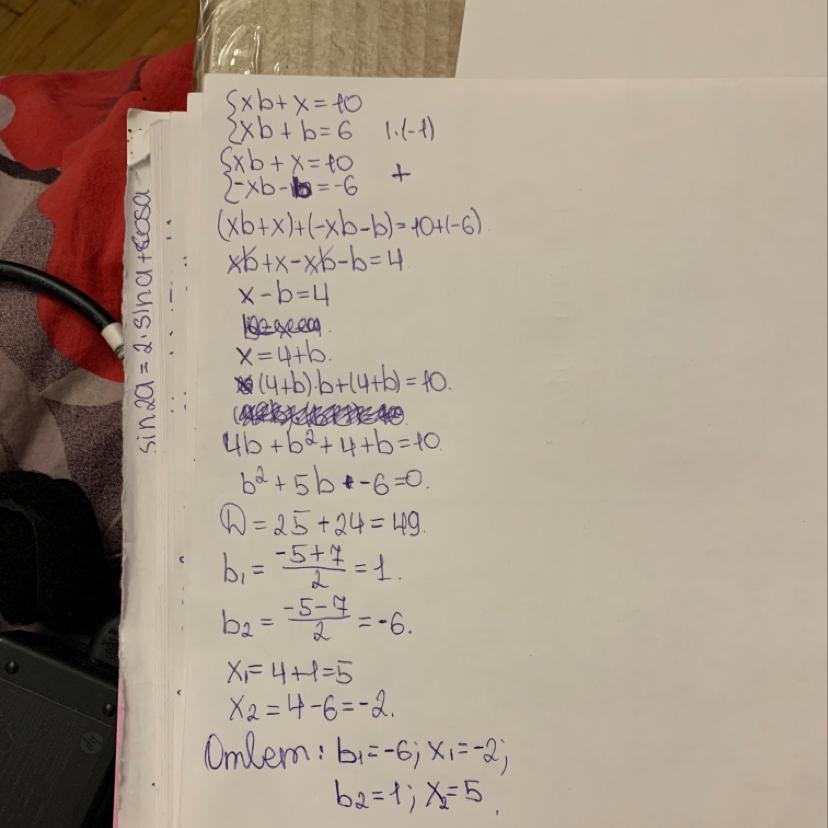 {xb+x=10
{xb+b=6 |·(-1)
{xb+x=10
{-xb-b=-6 +
(xb+x)+(-xb-b)=10+(-6)
xb+x-xb-b=4
x-b=4
x=4+b.
(4+b)·b+(4+b)=10.
4b+b²+4+b=10.
b²+5b-6=0.
D=25+24=49.
b₁=(-5+7)/2=1.
b₂=(-5-7)/2=-6.
x₁=4+1=5
x₂=4-6=-2.
Ответ: b₁=-6; x₁=-2;
b₂=1; x₂=5.
sin2a=2·sina+cosa